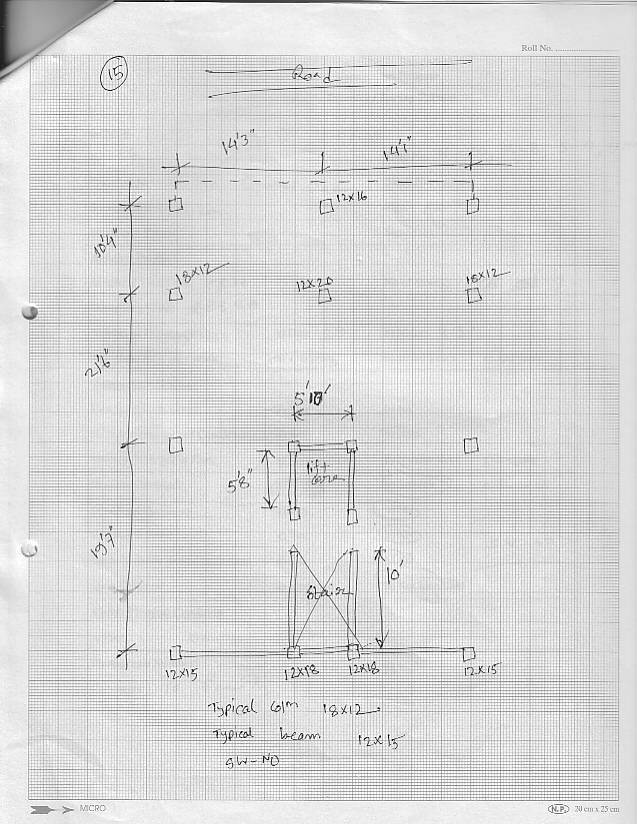 Roll No. ....................
15
Road
14'3"
14'1"
12x16
10'4"
18x12
12x20
18x12
21'6"
5'10"
5'8"
lift
core
19'7"
Stair
10'
12x15
12x18
12x18
12x15
Typical colm 18x12
Typical beam 12x15
SW-NO
MICRO
N.P. 20 cm x 25 cm